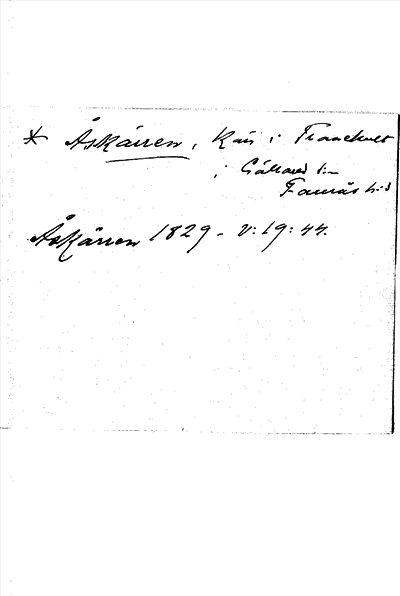 * Åskärren, Kärr i Tranehult
i Gällared sn
Faurås hd
Åskärren 1829 - V: 19: 44.